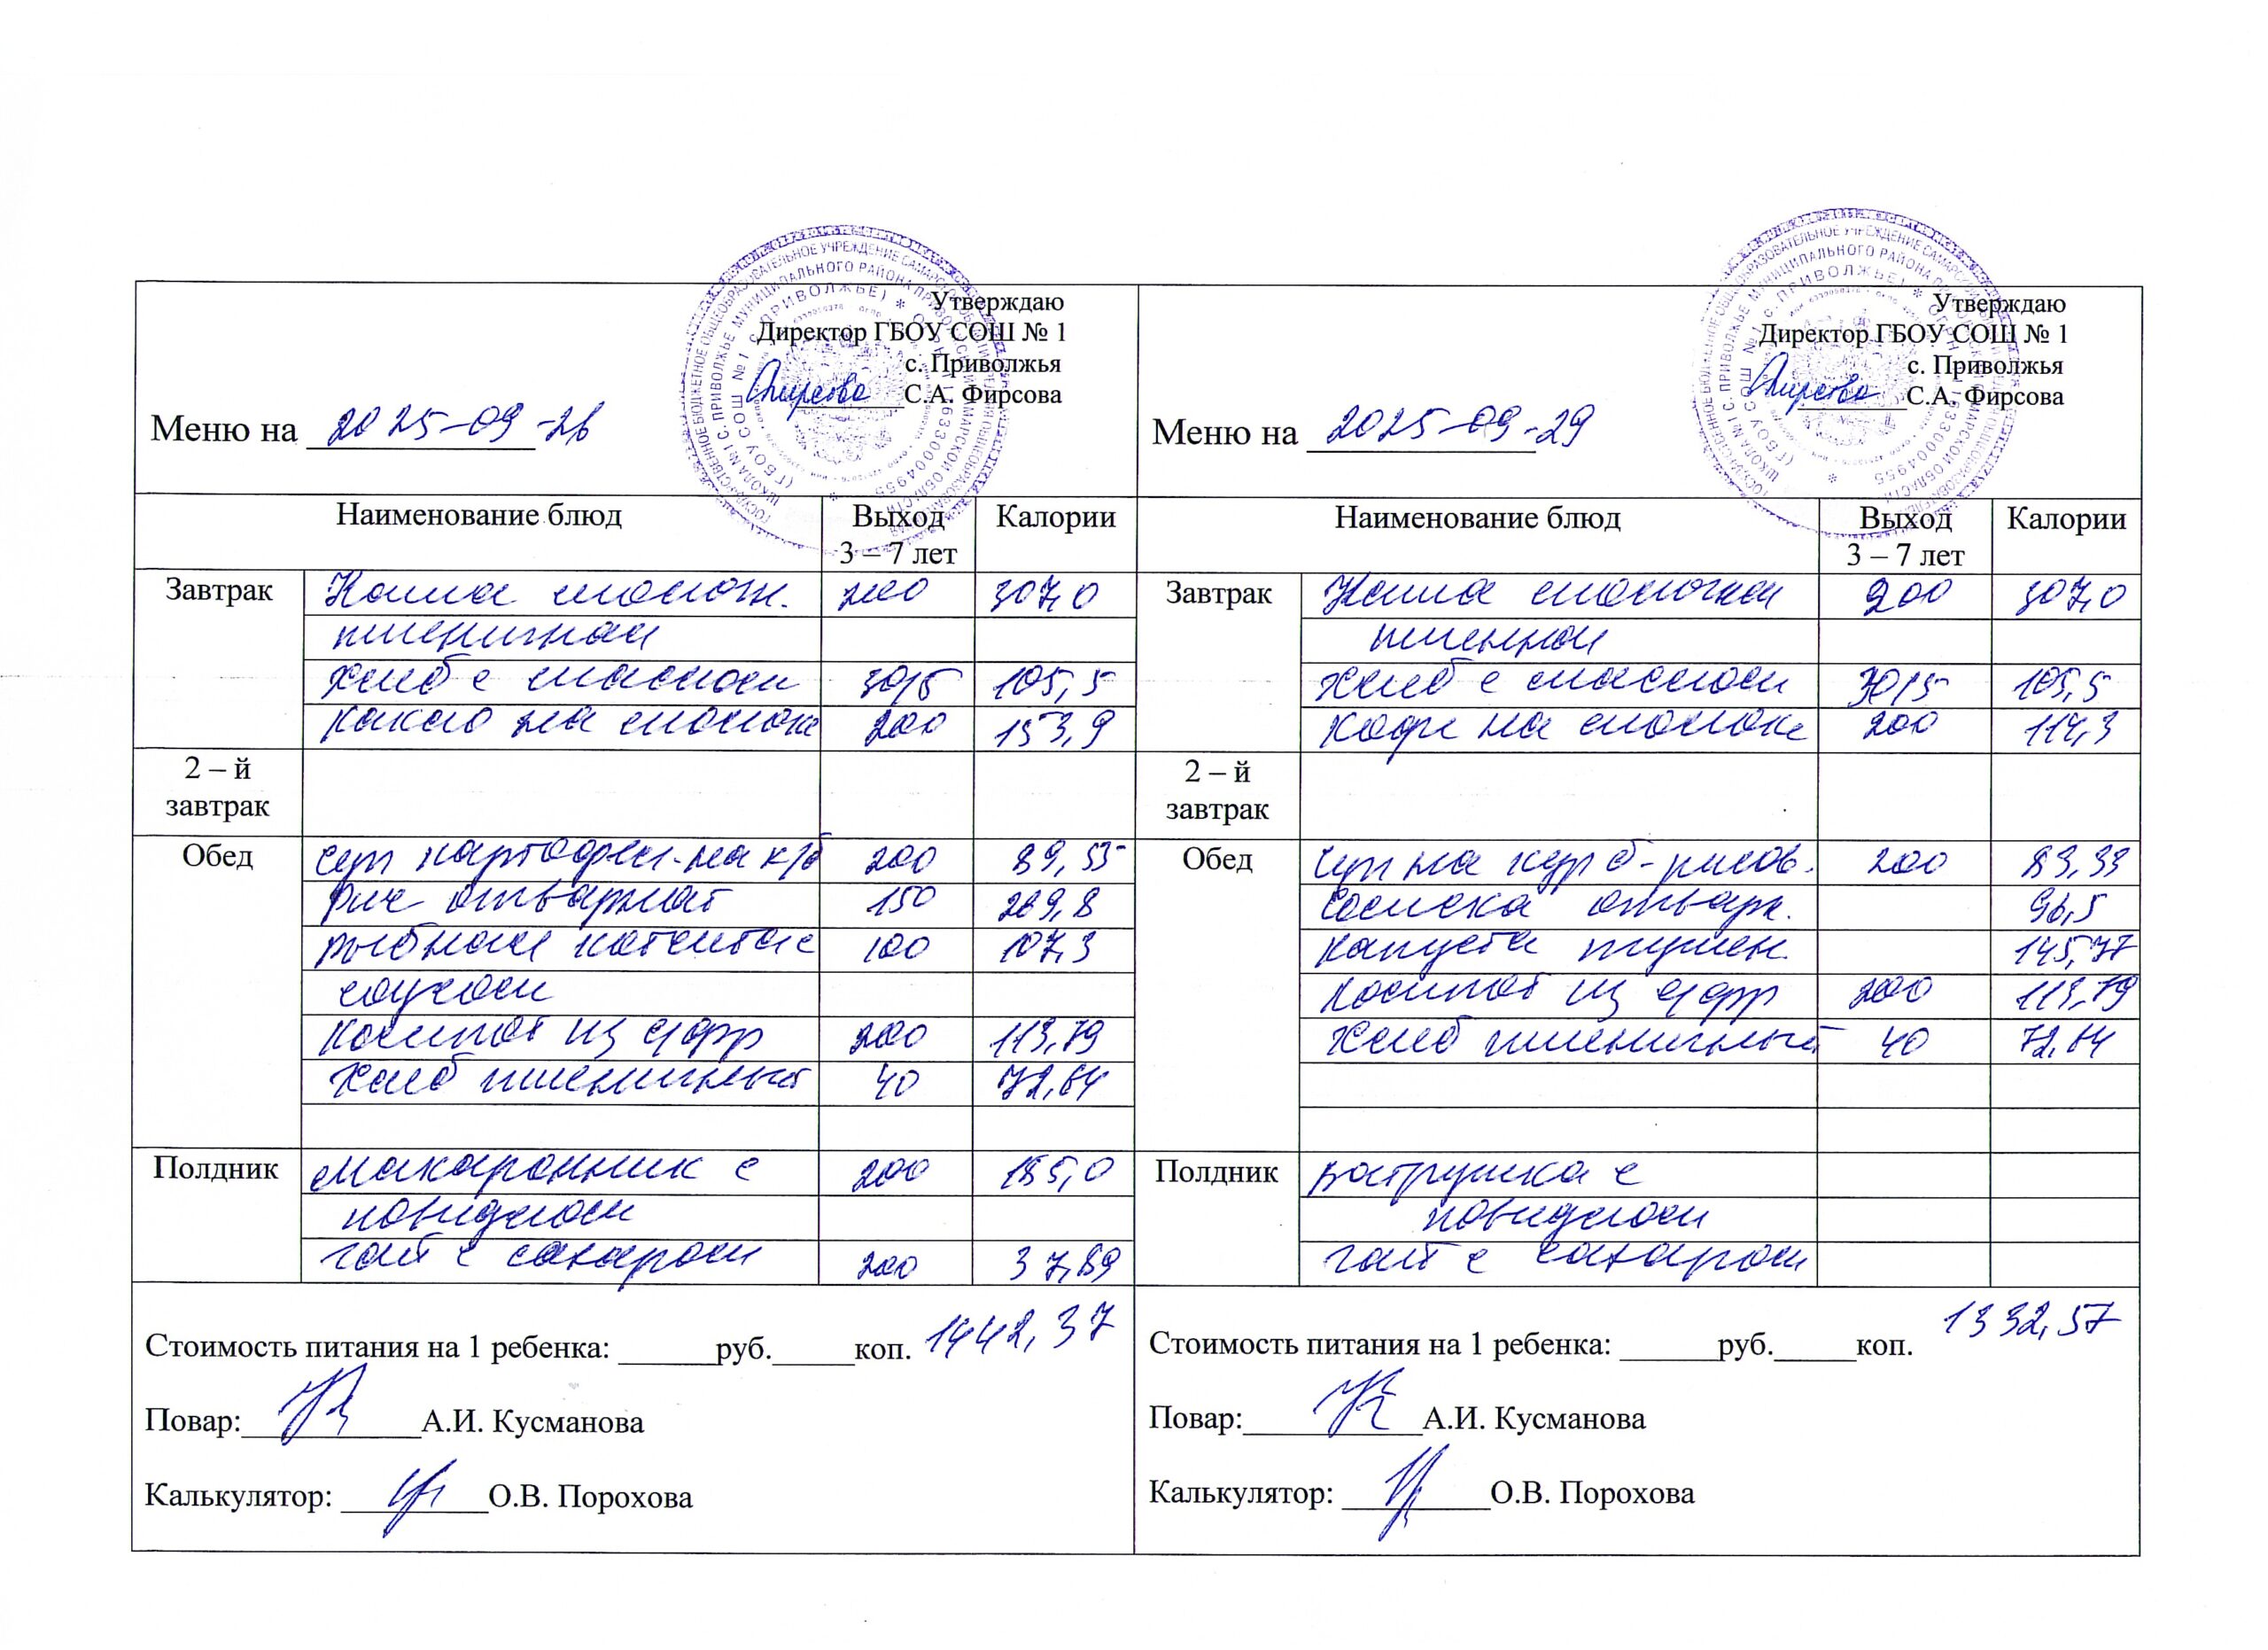 Утверждаю
Директор ГБОУ СОШ № 1
с. Приволжья
С.А. Фирсова
Меню на 2025-09-26
Наименование блюд Выход 3 – 7 лет Калории
Завтрак Каша молочн. 200 307,0
пшеничная
хлеб с маслом 30/5 105,5
какао на молоке 200 153,9
2 – й завтрак
Обед суп картофел-на к/б 200 89,55
рис отварной 150 209,8
рыбная котлета с 100 107,3
соусом
компот из с/фр 200 113,79
хлеб пшеничный 40 72,64
Полдник макаронник с 200 185,0
повидлом
чай с сахаром 200 37,89
Стоимость питания на 1 ребенка: руб. коп. 1442,37
Повар: А.И. Кусманова
Калькулятор: О.В. Порохова
Утверждаю
Директор ГБОУ СОШ № 1
с. Приволжья
С.А. Фирсова
Меню на 2025-09-29
Наименование блюд Выход 3 – 7 лет Калории
Завтрак Каша молочная 200 307,0
пшенная
хлеб с маслом 30/5 105,5
кофе на молоке 200 114,3
2 – й завтрак
Обед суп на кур б-рисов. 200 83,33
сосиска отварн. 96,5
капуста тушен. 145,77
компот из с/фр 200 113,79
хлеб пшеничный 40 72,64
Полдник ватрушка с
повидлом
чай с сахаром
Стоимость питания на 1 ребенка: руб. коп. 1332,57
Повар: А.И. Кусманова
Калькулятор: О.В. Порохова